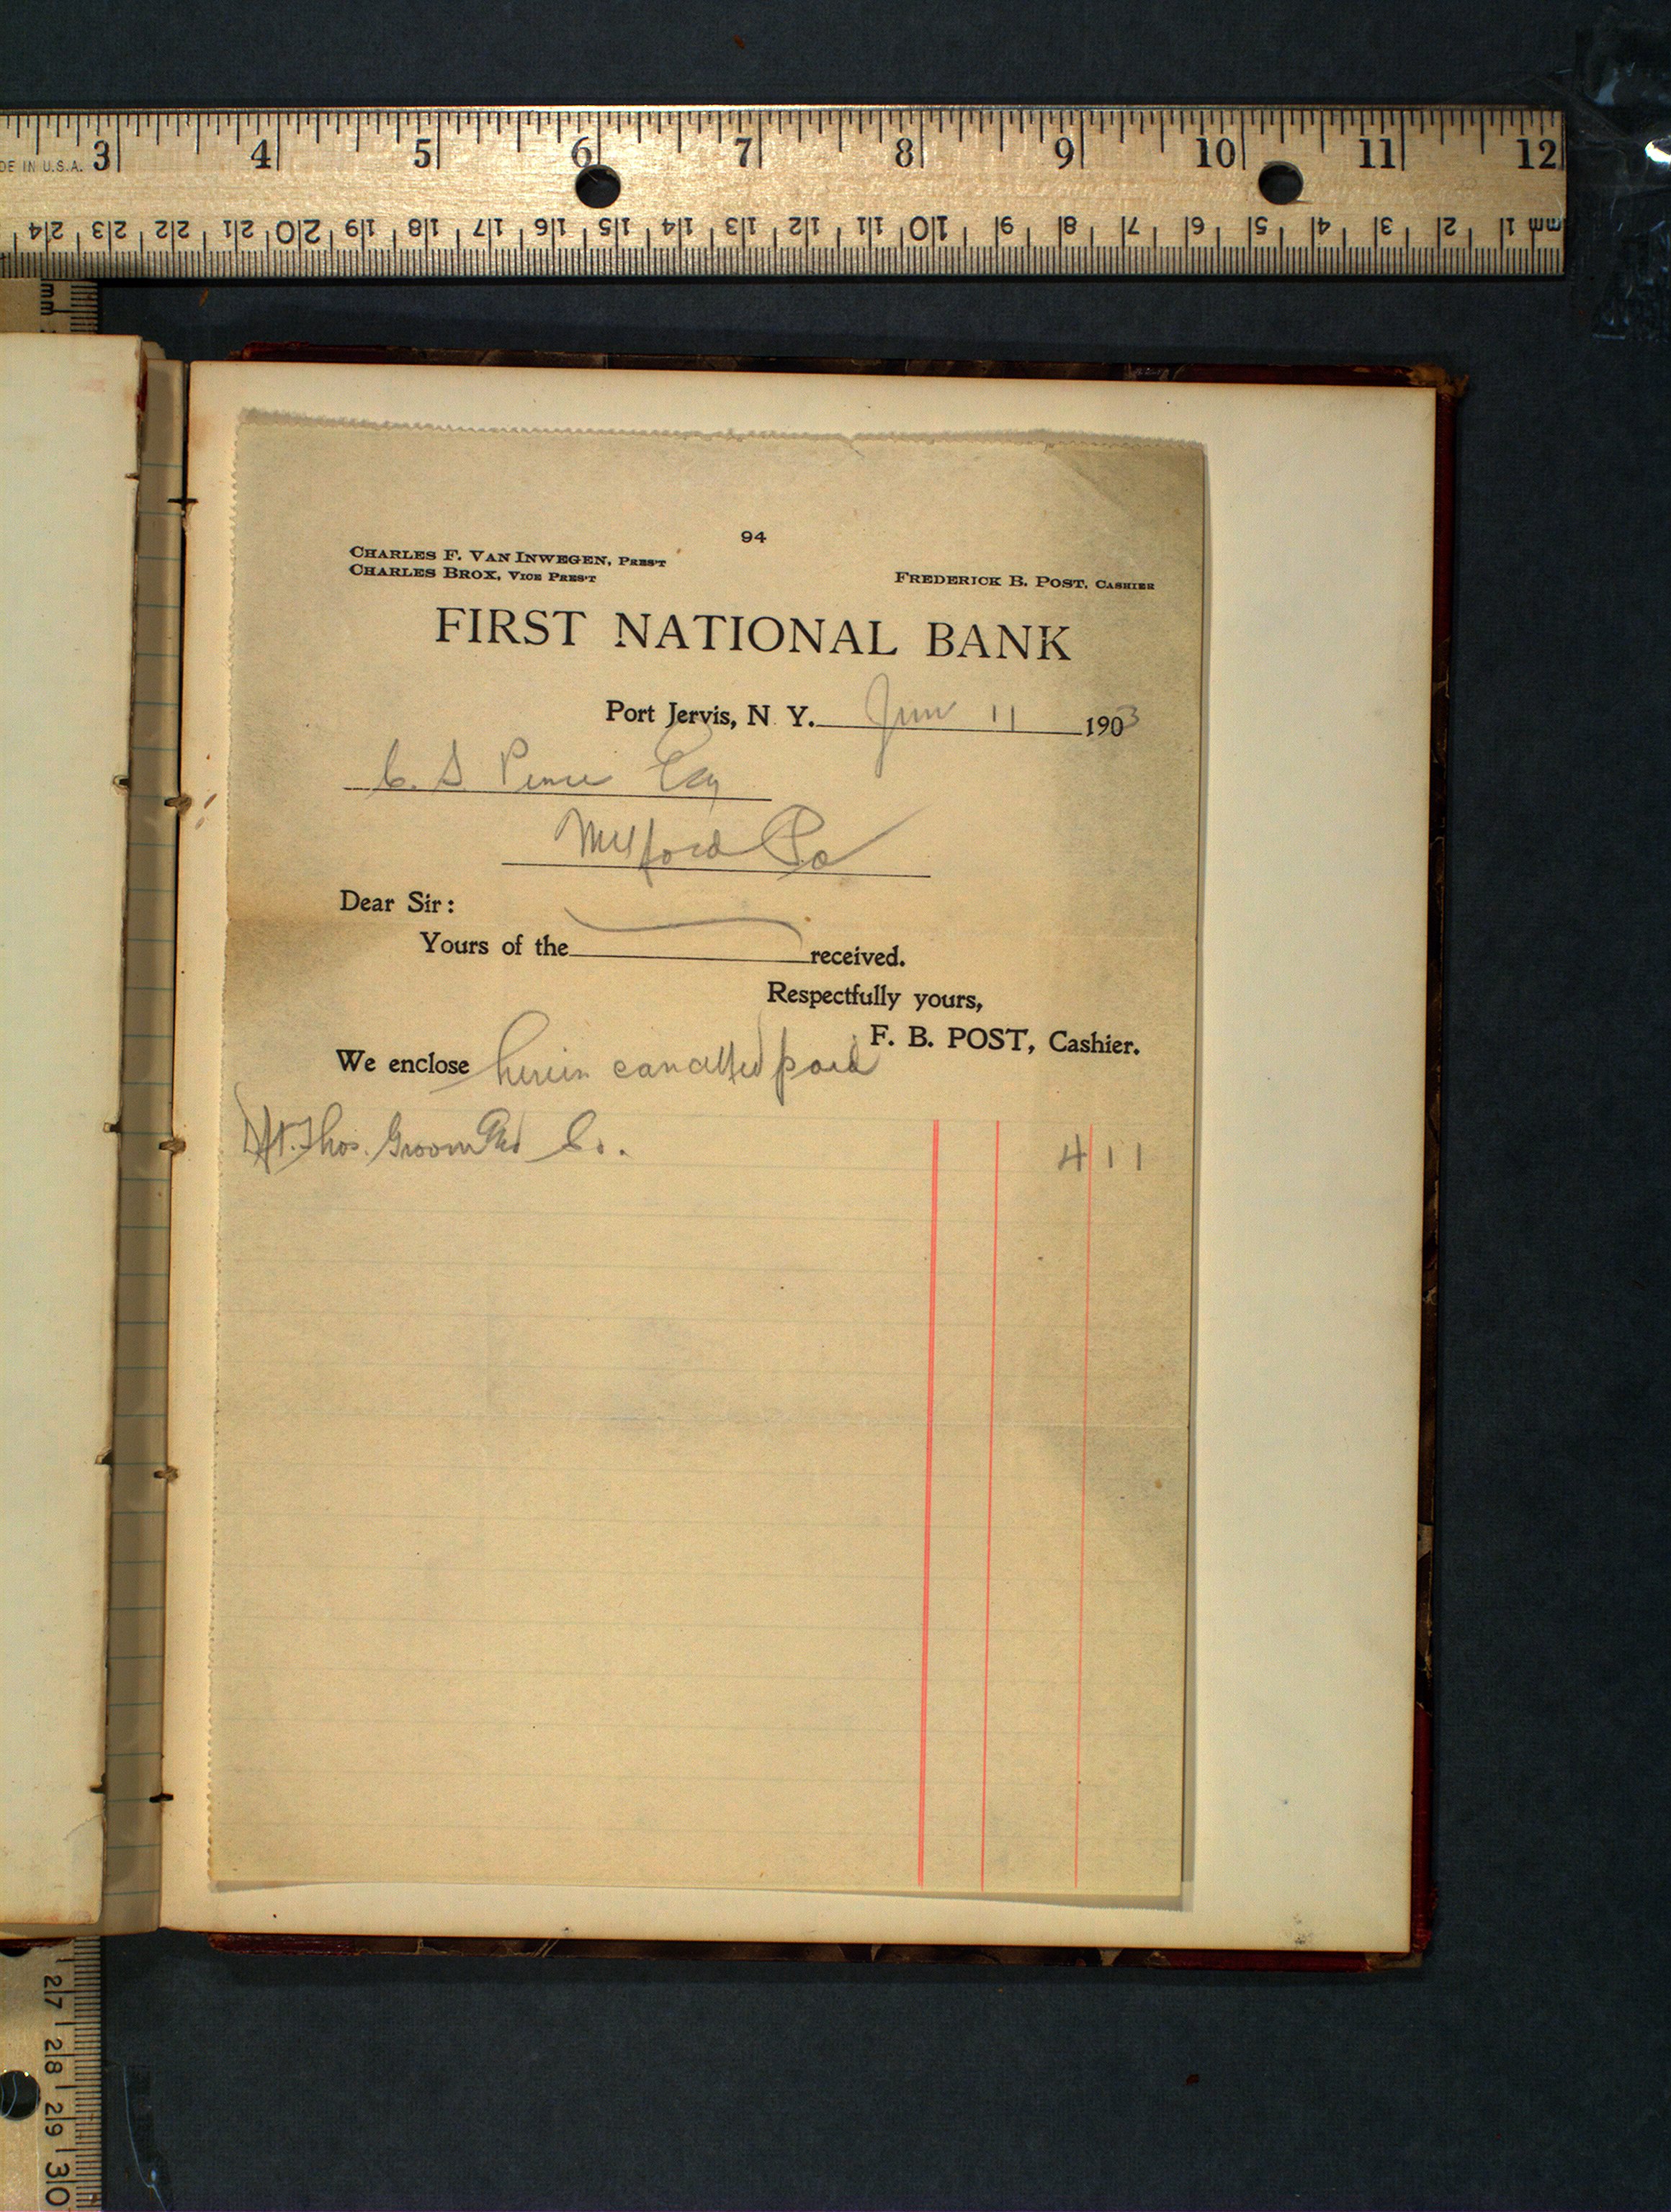 DE IN U.S.A. 3 4 5 6 7 8 9 10 11 12
24 23 22 21 20 19 18 17 16 15 14 13 12 11 10 9 8 7 6 5 4 3 2 1 mm
mm
94
CHARLES F. VAN INWEGEN, PRES'T
CHARLES BROX, VICE PRES'T
FREDERICK B. POST, CASHIER
FIRST NATIONAL BANK
Port Jervis, N. Y. Jun 11 1903
C. S. Peirce Esq
Milford Pa
Dear Sir:
Yours of the received.
Respectfully yours,
F. B. POST, Cashier.
We enclose herein cancelled paid
Dft. Thos. Groom & Co. 4 11
27 28 29 30